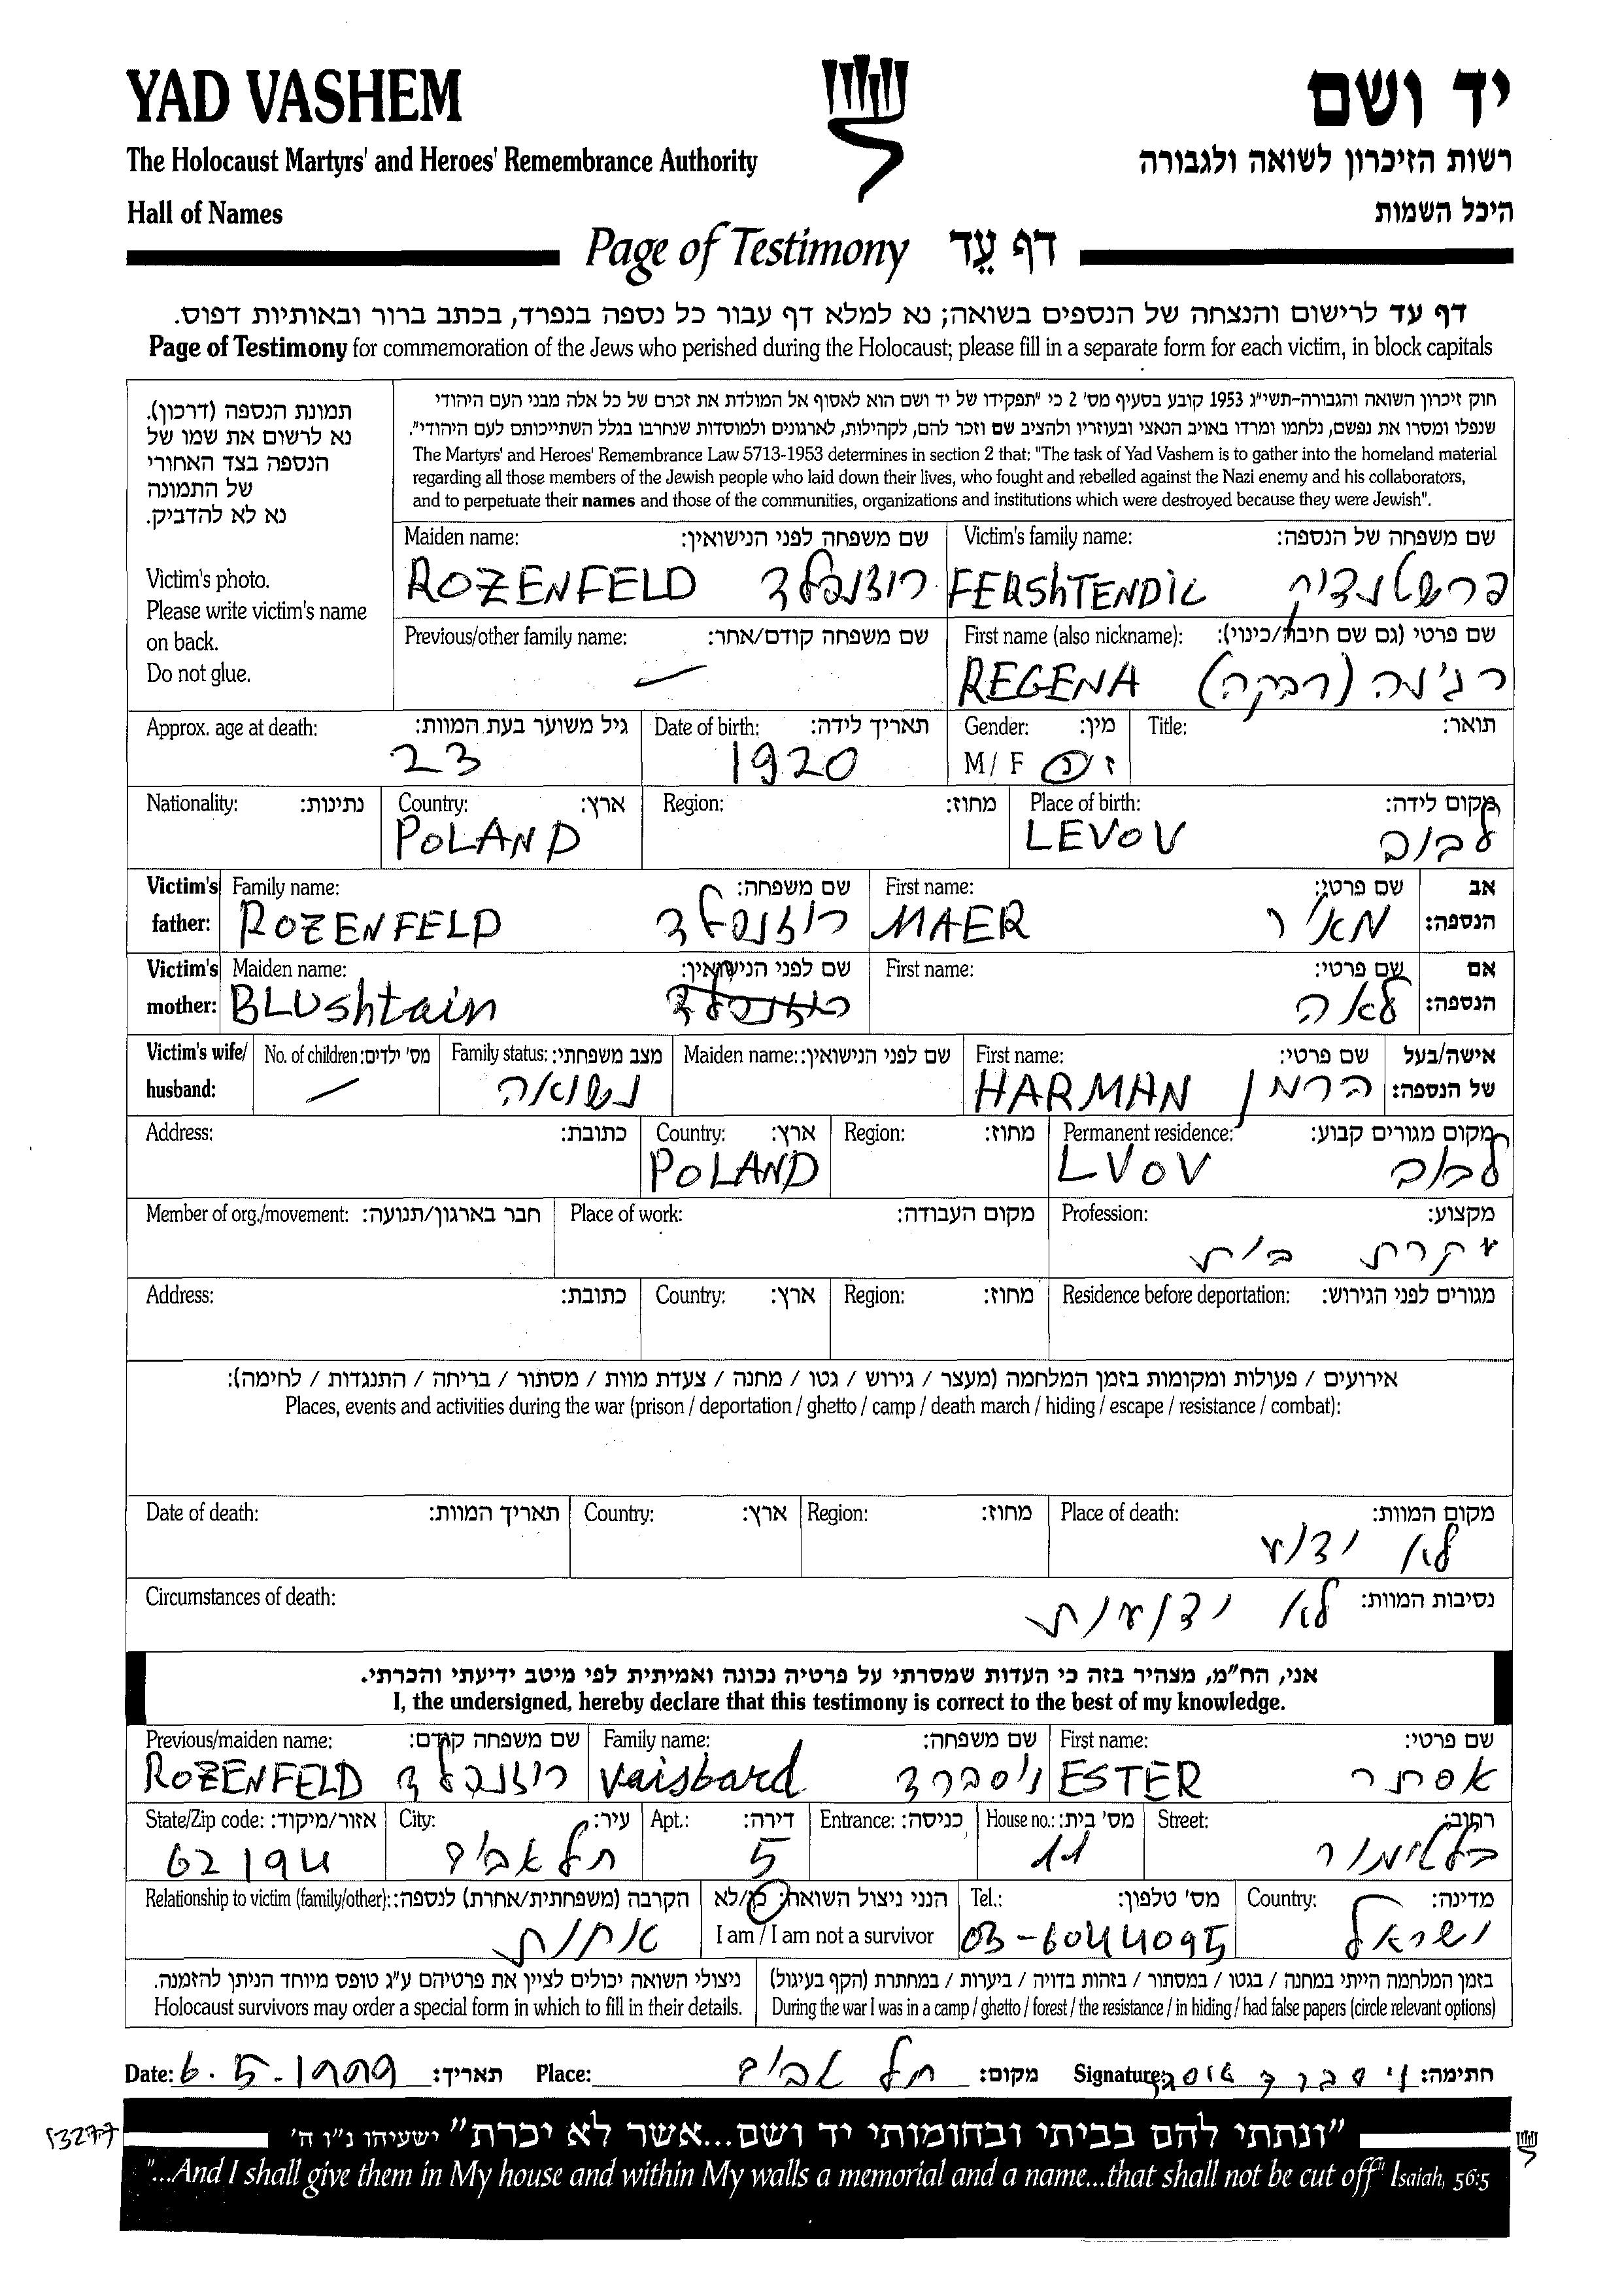 YAD VASHEM יד ושם
The Holocaust Martyrs' and Heroes' Remembrance Authority רשות הזיכרון לשואה ולגבורה
Hall of Names היכל השמות
Page of Testimony דף עֵד
דף עד לרישום והנצחה של הנספים בשואה; נא למלא דף עבור כל נספה בנפרד, בכתב ברור ובאותיות דפוס.
Page of Testimony for commemoration of the Jews who perished during the Holocaust; please fill in a separate form for each victim, in block capitals
תמונת הנספה (דרכון).
נא לרשום את שמו של
הנספה בצד האחורי
של התמונה
נא לא להדביק.
Victim's photo.
Please write victim's name
on back.
Do not glue.
חוק זיכרון השואה והגבורה-תשי"ג 1953 קובע בסעיף מס' 2 כי "תפקידו של יד ושם הוא לאסוף אל המולדת את זכרם של כל אלה מבני העם היהודי
שנפלו ומסרו את נפשם, נלחמו ומרדו באויב הנאצי ובעוזריו ולהציב שם וזכר להם, לקהילות, לארגונים ולמוסדות שנחרבו בגלל השתייכותם לעם היהודי".
The Martyrs' and Heroes' Remembrance Law 5713-1953 determines in section 2 that: "The task of Yad Vashem is to gather into the homeland material
regarding all those members of the Jewish people who laid down their lives, who fought and rebelled against the Nazi enemy and his collaborators,
and to perpetuate their names and those of the communities, organizations and institutions which were destroyed because they were Jewish".
Maiden name: שם משפחה לפני הנישואין: Victim's family name: שם משפחה של הנספה:
ROZENFELD רוזנפלד FERShTENDIC פרשטנדיק
Previous/other family name: שם משפחה קודם/אחר: First name (also nickname): שם פרטי (גם שם חיבה/כינוי):
— REGENA רג'ינה (רבקה)
Approx. age at death: גיל משוער בעת המוות: Date of birth: תאריך לידה: Gender: מין: Title: תואר:
23 1920 M / F ז / נ
Nationality: נתינות: Country: ארץ: Region: מחוז: Place of birth: מקום לידה:
POLAND LEVOV לבוב
Victim's father: Family name: שם משפחה: First name: שם פרטי: אב הנספה:
ROZENFELD רוזנפלד MAER מאיר
Victim's mother: Maiden name: שם לפני הנישואין: First name: שם פרטי: אם הנספה:
BLUshtain רוזנפלד לאה
Victim's wife/ husband: No. of children: מס' ילדים: Family status: מצב משפחתי: Maiden name: שם לפני הנישואין: First name: שם פרטי: אישה/בעל של הנספה:
— נשואה HARMAN הרמן
Address: כתובת: Country: ארץ: Region: מחוז: Permanent residence: מקום מגורים קבוע:
POLAND LVOV לבוב
Member of org./movement: חבר בארגון/תנועה: Place of work: מקום העבודה: Profession: מקצוע:
עקרת בית
Address: כתובת: Country: ארץ: Region: מחוז: Residence before deportation: מגורים לפני הגירוש:
אירועים / פעולות ומקומות בזמן המלחמה (מעצר / גירוש / גטו / מחנה / צעדת מוות / מסתור / בריחה / התנגדות / לחימה):
Places, events and activities during the war (prison / deportation / ghetto / camp / death march / hiding / escape / resistance / combat):
Date of death: תאריך המוות: Country: ארץ: Region: מחוז: Place of death: מקום המוות:
לא ידוע
Circumstances of death: נסיבות המוות:
לא ידועות
אני, הח"מ, מצהיר בזה כי העדות שמסרתי על פרטיה נכונה ואמיתית לפי מיטב ידיעתי והכרתי.
I, the undersigned, hereby declare that this testimony is correct to the best of my knowledge.
Previous/maiden name: שם משפחה קודם: Family name: שם משפחה: First name: שם פרטי:
ROZENFELD רוזנפלד Vaisbard ויסברד ESTER אסתר
State/Zip code: אזור/מיקוד: City: עיר: Apt.: דירה: Entrance: כניסה: House no.: מס' בית: Street: רחוב:
62194 תל אביב 5 11 בלטימור
Relationship to victim (family/other): הקרבה (משפחתית/אחרת) לנספה: הנני ניצול השואה: כן/לא Tel.: מס' טלפון: Country: מדינה:
אחות I am / I am not a survivor 03-6044095 ישראל
ניצולי השואה יכולים לציין את פרטיהם ע"ג טופס מיוחד הניתן להזמנה. בזמן המלחמה הייתי במחנה / בגטו / במסתור / בזהות בדויה / ביערות / במחתרת (הקף בעיגול)
Holocaust survivors may order a special form in which to fill in their details. During the war I was in a camp / ghetto / forest / the resistance / in hiding / had false papers (circle relevant options)
Date: 6.5.1999 תאריך: Place: תל אביב מקום: Signature: ויסברד חתימה:
"ונתתי להם בביתי ובחומותי יד ושם...אשר לא יכרת" ישעיהו נ"ו ה'
"...And I shall give them in My house and within My walls a memorial and a name...that shall not be cut off" Isaiah, 56:5